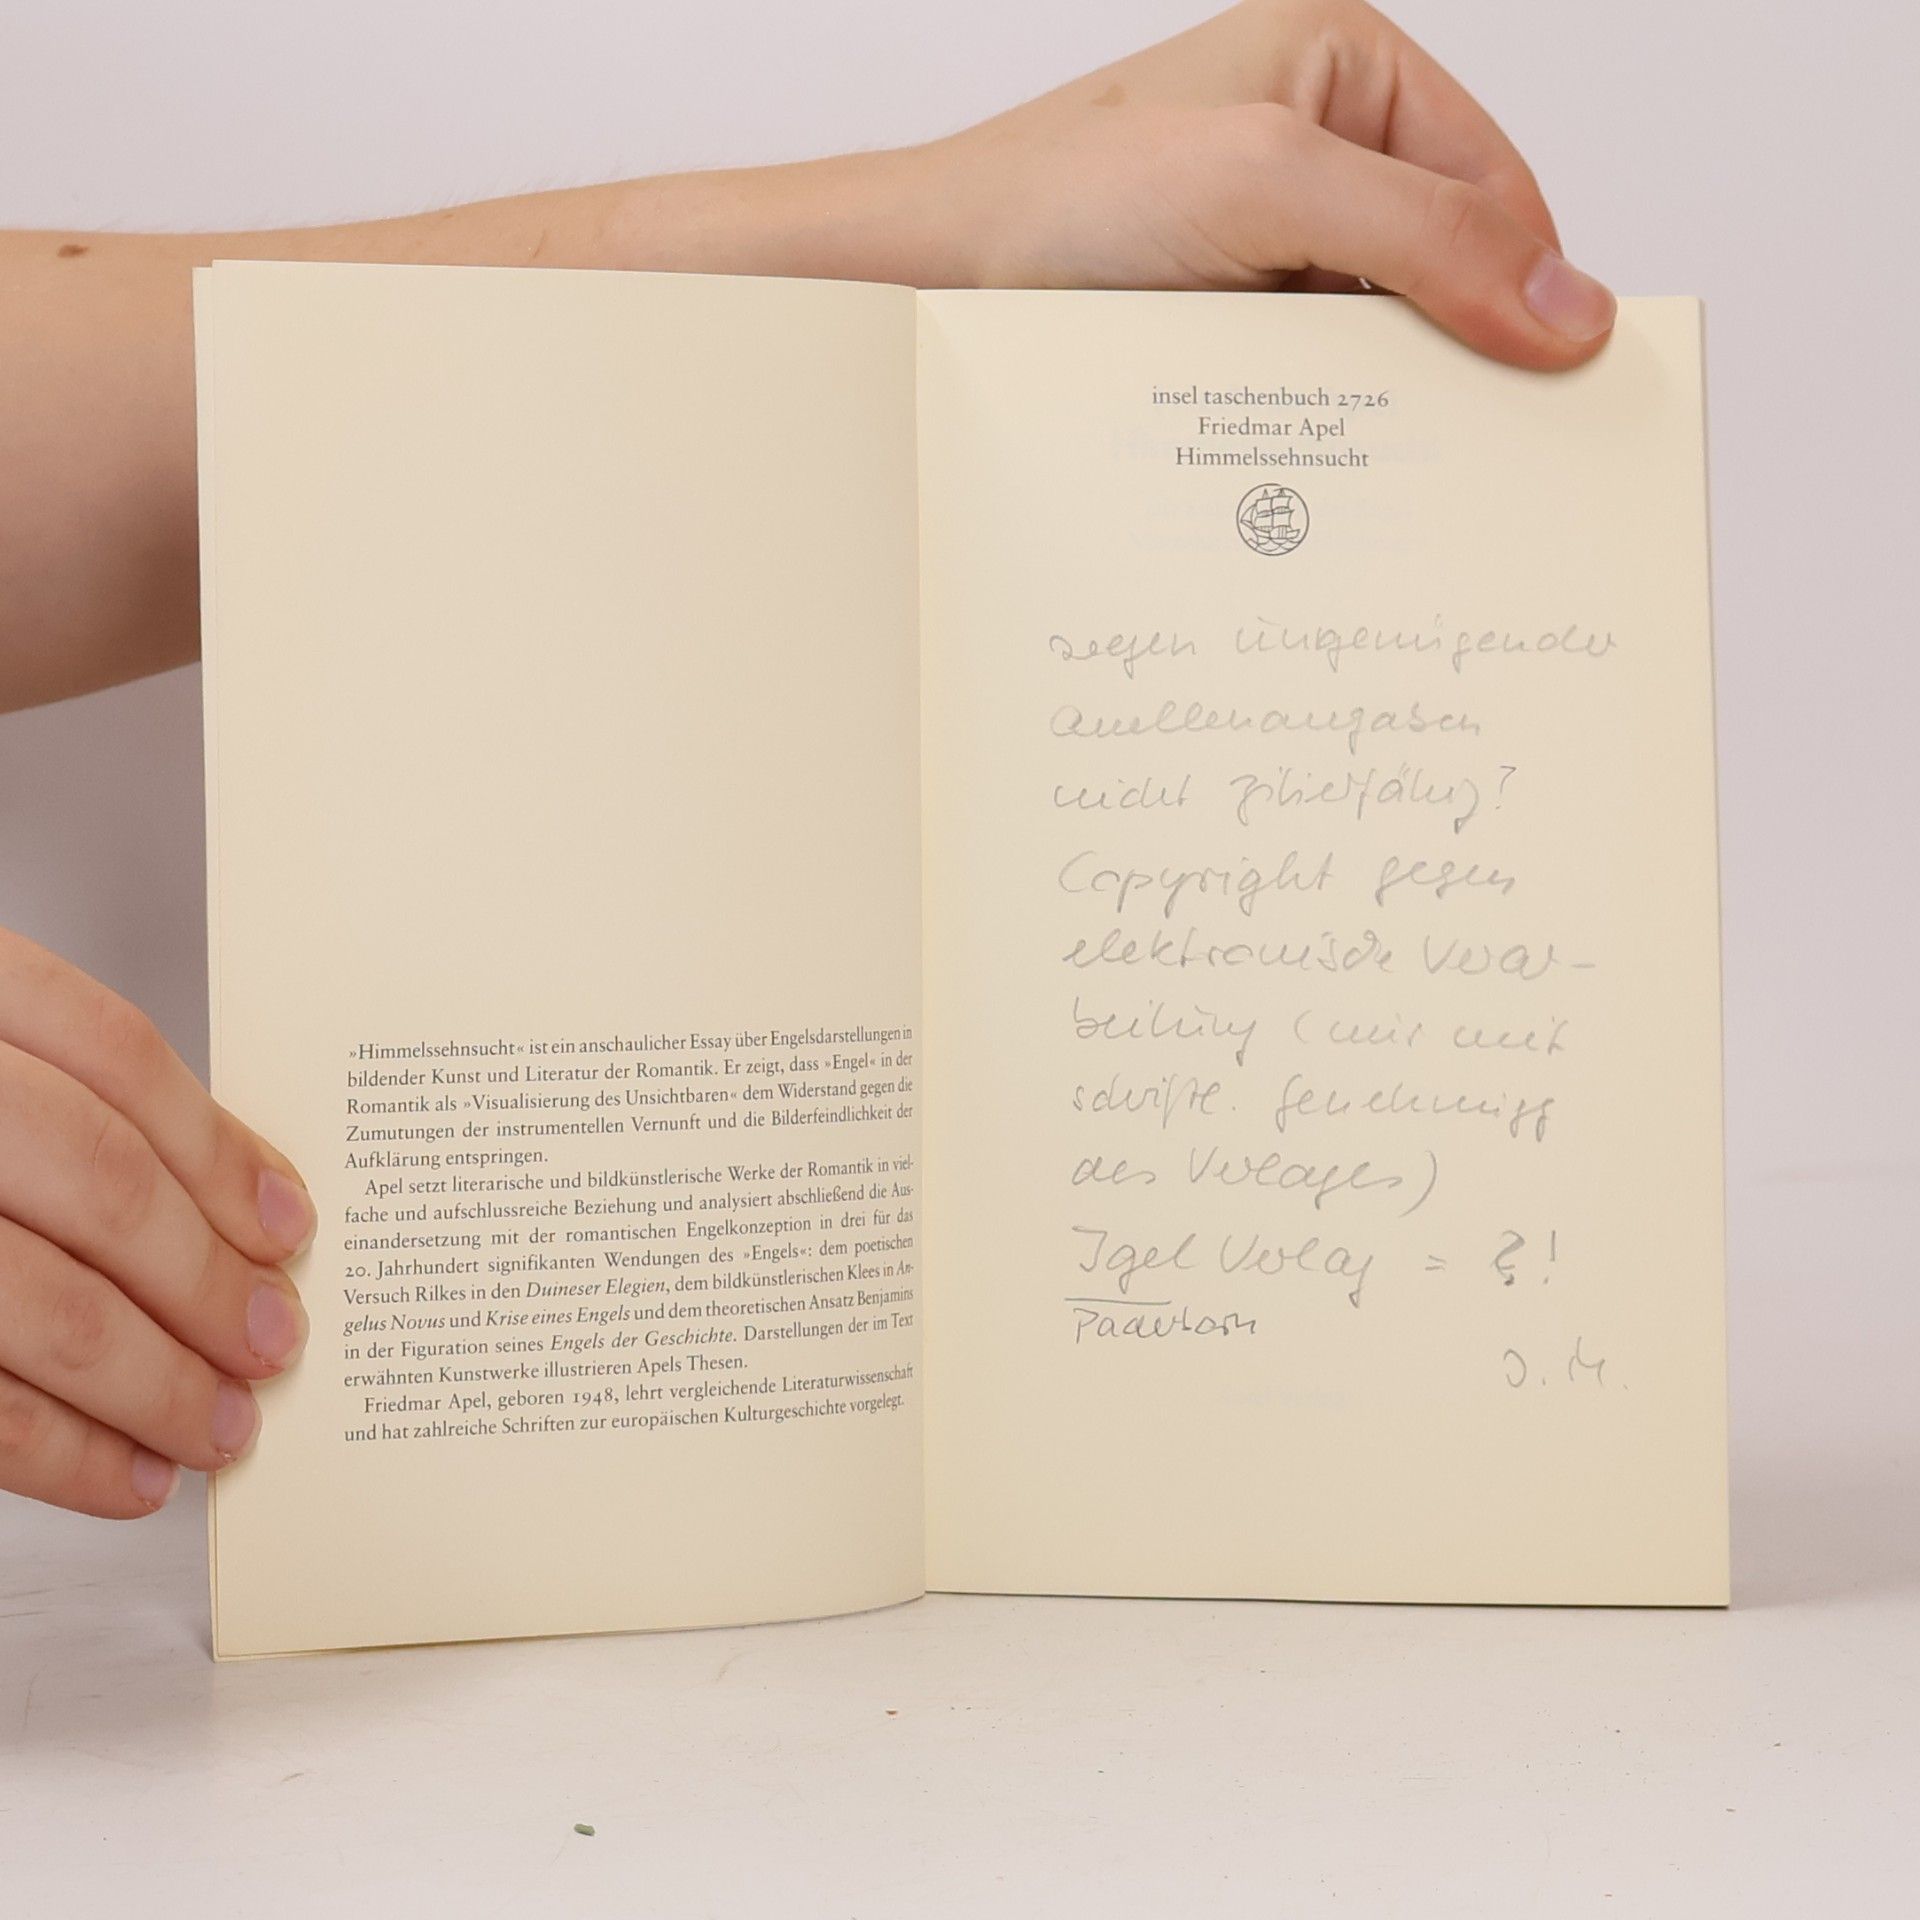 »Himmelssehnsucht« ist ein anschaulicher Essay über Engelsdarstellungen in
bildender Kunst und Literatur der Romantik. Er zeigt, dass »Engel« in der
Romantik als »Visualisierung des Unsichtbaren« dem Widerstand gegen die
Zumutungen der instrumentellen Vernunft und die Bilderfeindlichkeit der
Aufklärung entspringen.
Apel setzt literarische und bildkünstlerische Werke der Romantik in viel-
fache und aufschlussreiche Beziehung und analysiert abschließend die Aus-
einandersetzung mit der romantischen Engelkonzeption in drei für das
20. Jahrhundert signifikanten Wendungen des »Engels«: dem poetischen
Versuch Rilkes in den Duineser Elegien, dem bildkünstlerischen Klees in An-
gelus Novus und Krise eines Engels und dem theoretischen Ansatz Benjamins
in der Figuration seines Engels der Geschichte. Darstellungen der im Text
erwähnten Kunstwerke illustrieren Apels Thesen.
Friedmar Apel, geboren 1948, lehrt vergleichende Literaturwissenschaft
und hat zahlreiche Schriften zur europäischen Kulturgeschichte vorgelegt.
insel taschenbuch 2726
Friedmar Apel
Himmelssehnsucht
wegen ungenügender
Quellenangaben
nicht zitierfähig?
Copyright gegen
elektronische Verar-
beitung (nur mit
schriftl. Genehmigg
des Verlages)
Igel Verlag = ?!
Paderborn
J. M.